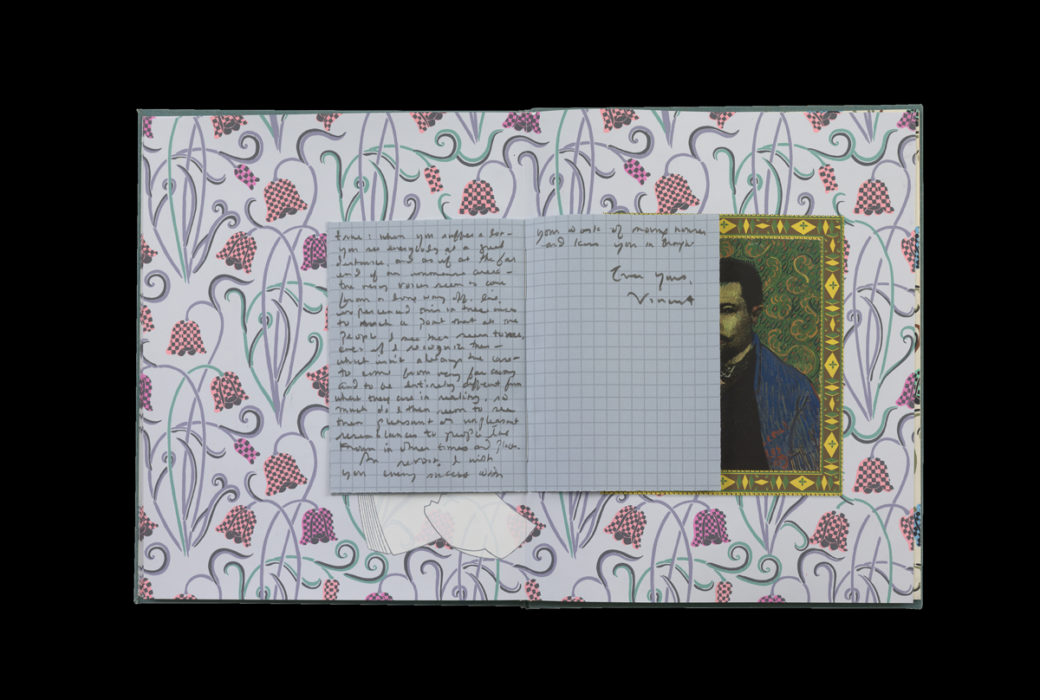 true: when you suffer a lot –
you see everybody at a great
distance, and as if at the far
end of an immense arena –
the very voices seem to come
from a long way off. I've
experienced this in these crises
to such a point that all the
people I see then seem to me,
even if I recognize them –
which isn't always the case –
to come from very far away
and to be entirely different from
what they are in reality, so
much do I then seem to see
them pleasant or unpleasant
resemblances to people I've
known in other times and places.
Au revoir, I wish
you every success with
your work of moving houses
and you in
Ever yours,
Vincent